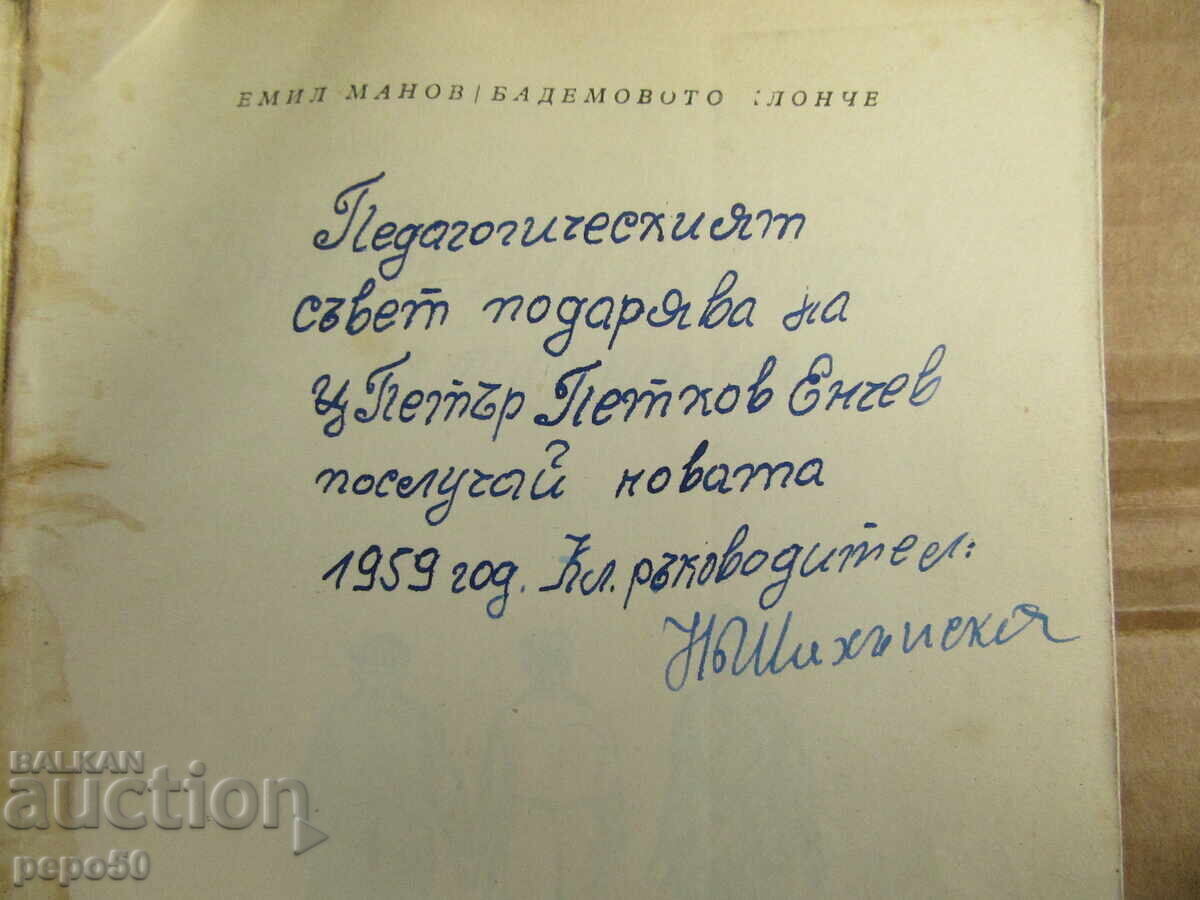 ЕМИЛ МАНОВ / БАДЕМОВОТО КЛОНЧЕ
Педагогическият
съвет подарява на
Петър Петков Енчев
послучай новата
1959 год. Кл. ръководител:
BALKAN
auction
pepo50